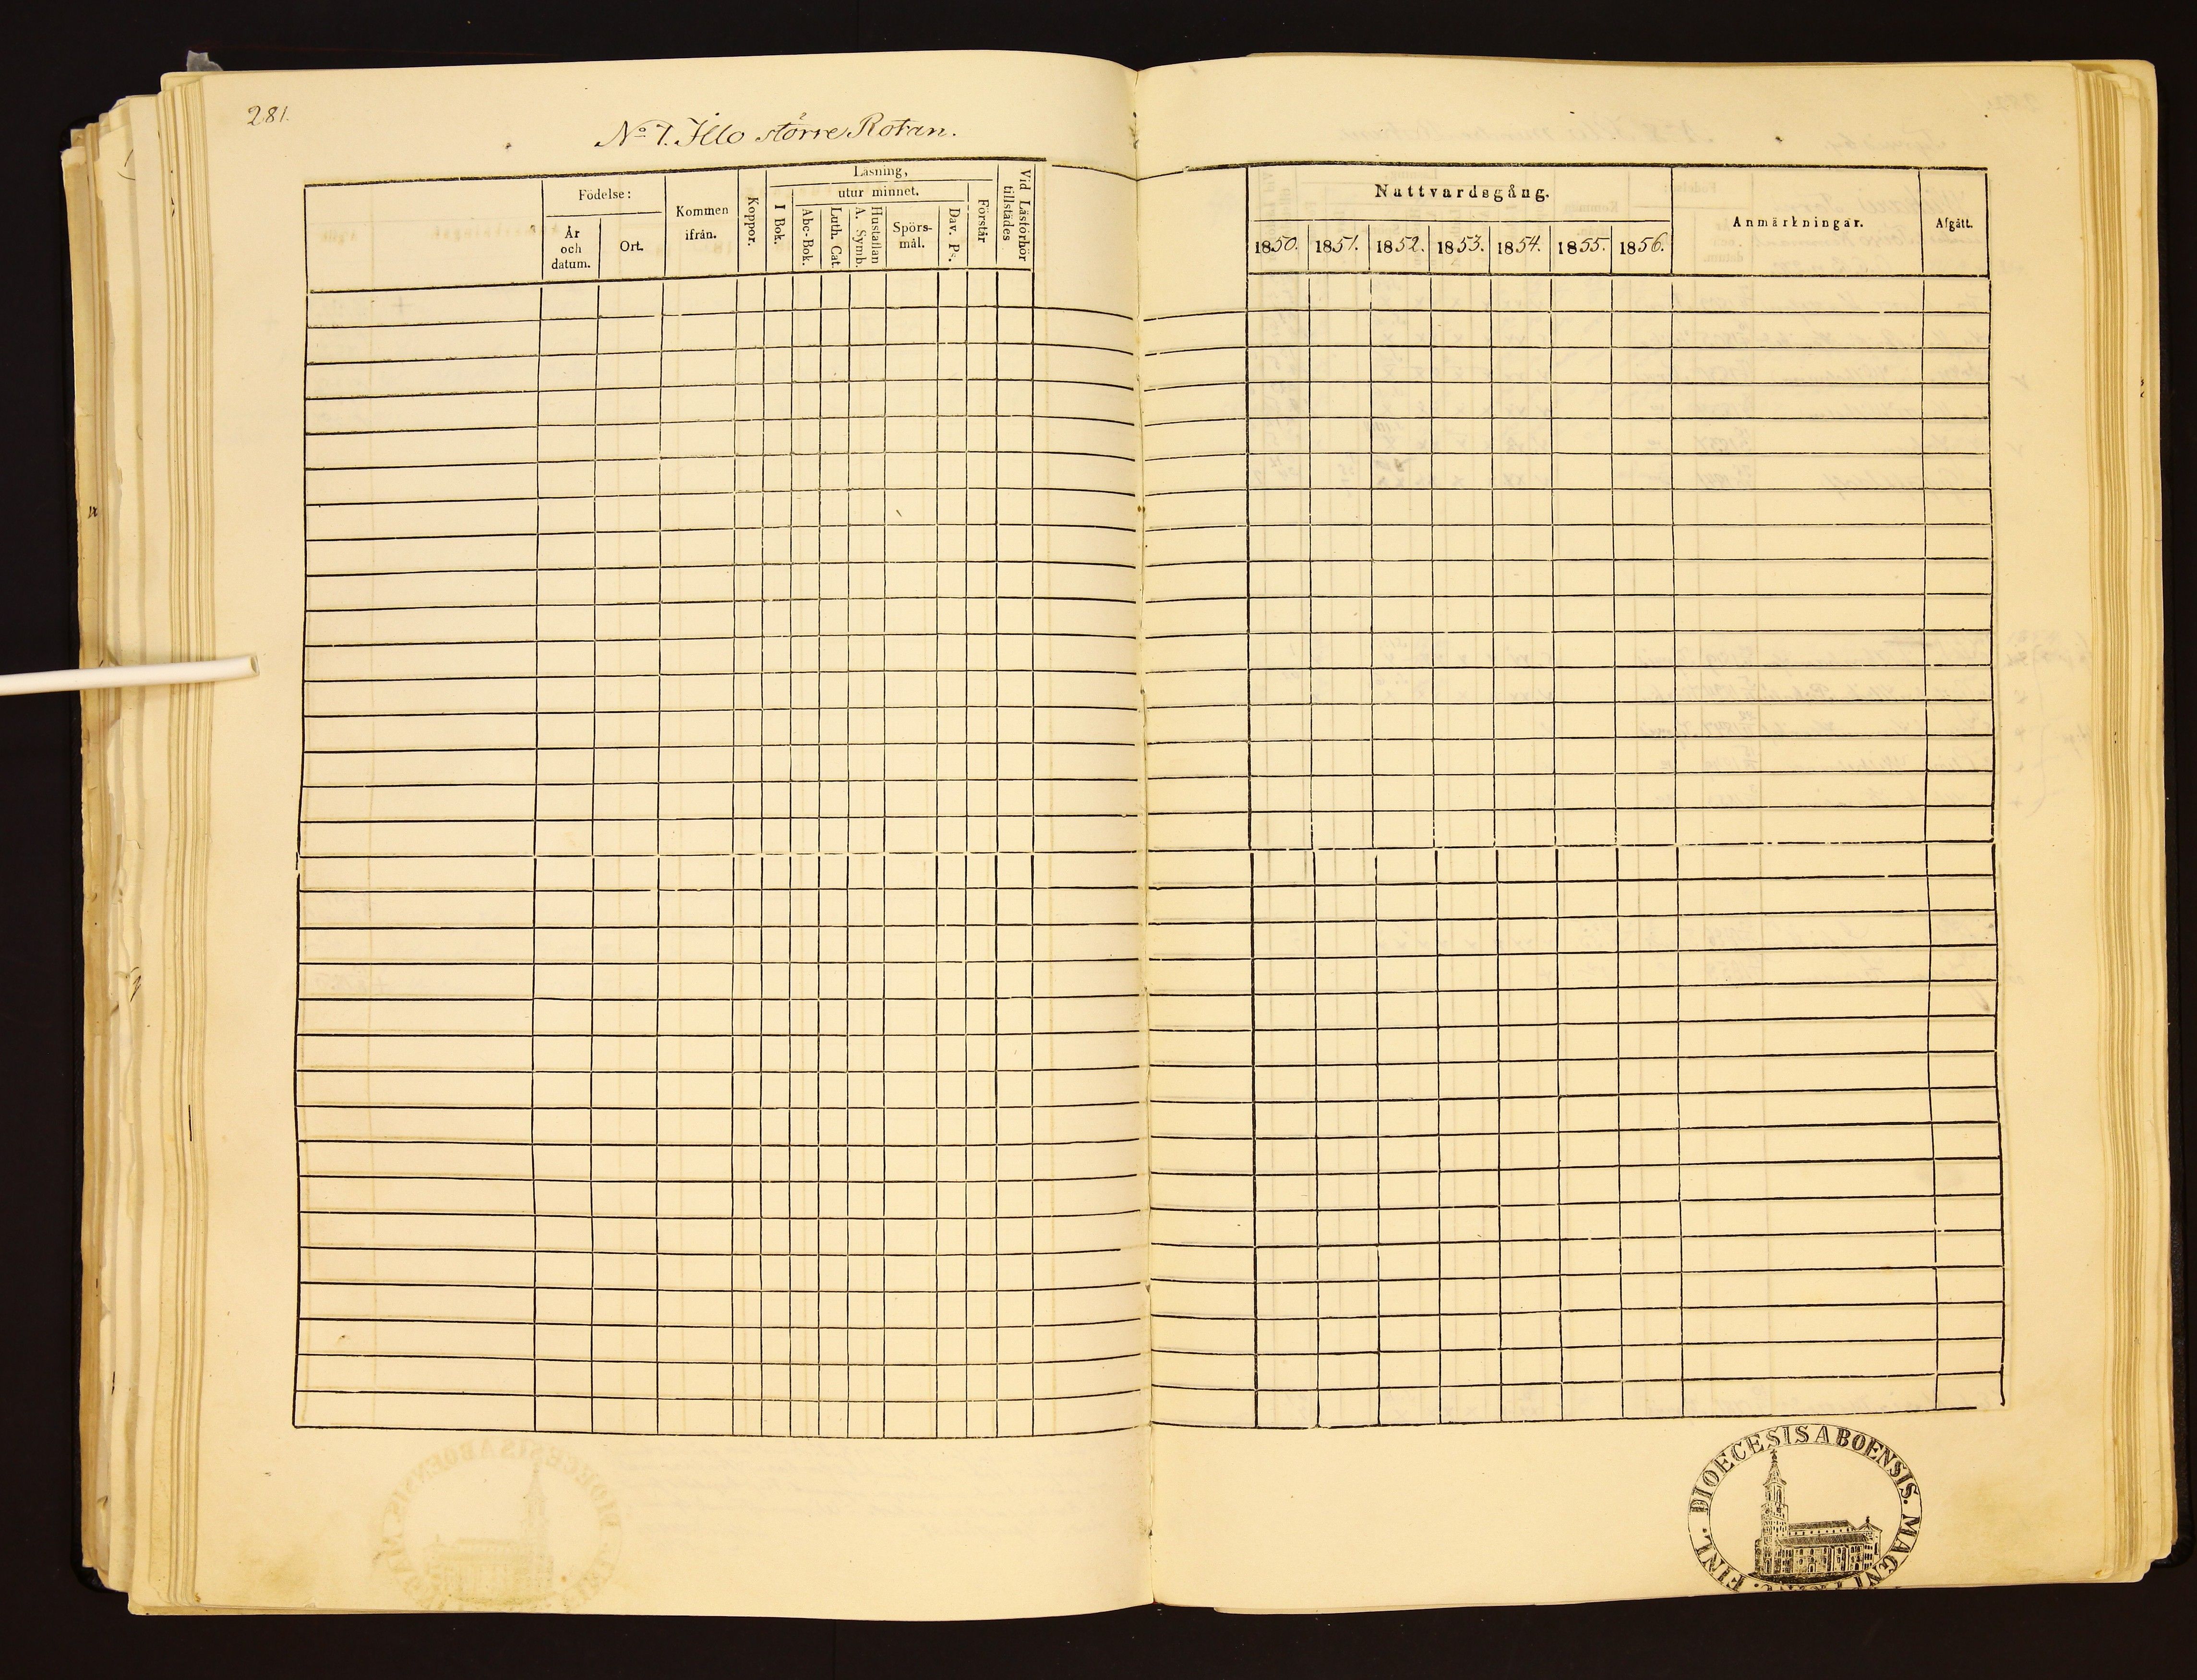 281.
No 7. Illo större Rotan.
Födelse:
År
och
datum.
Ort.
Kommen
ifrån.
Koppor.
Läsning,
utur minnet.
I Bok.
Abc-Bok.
Luth. Cat.
A. Symb.
Hustaflan
Spörs-
mål.
Dav. Ps.
Förstår
Vid Läsförhör
tillstädes
Nattvardsgång.
1850. 1851. 1852. 1853. 1854. 1855. 1856.
Anmärkningar.
Afgått.
DIOECESIS ABOENSIS. MAGNI FINL.